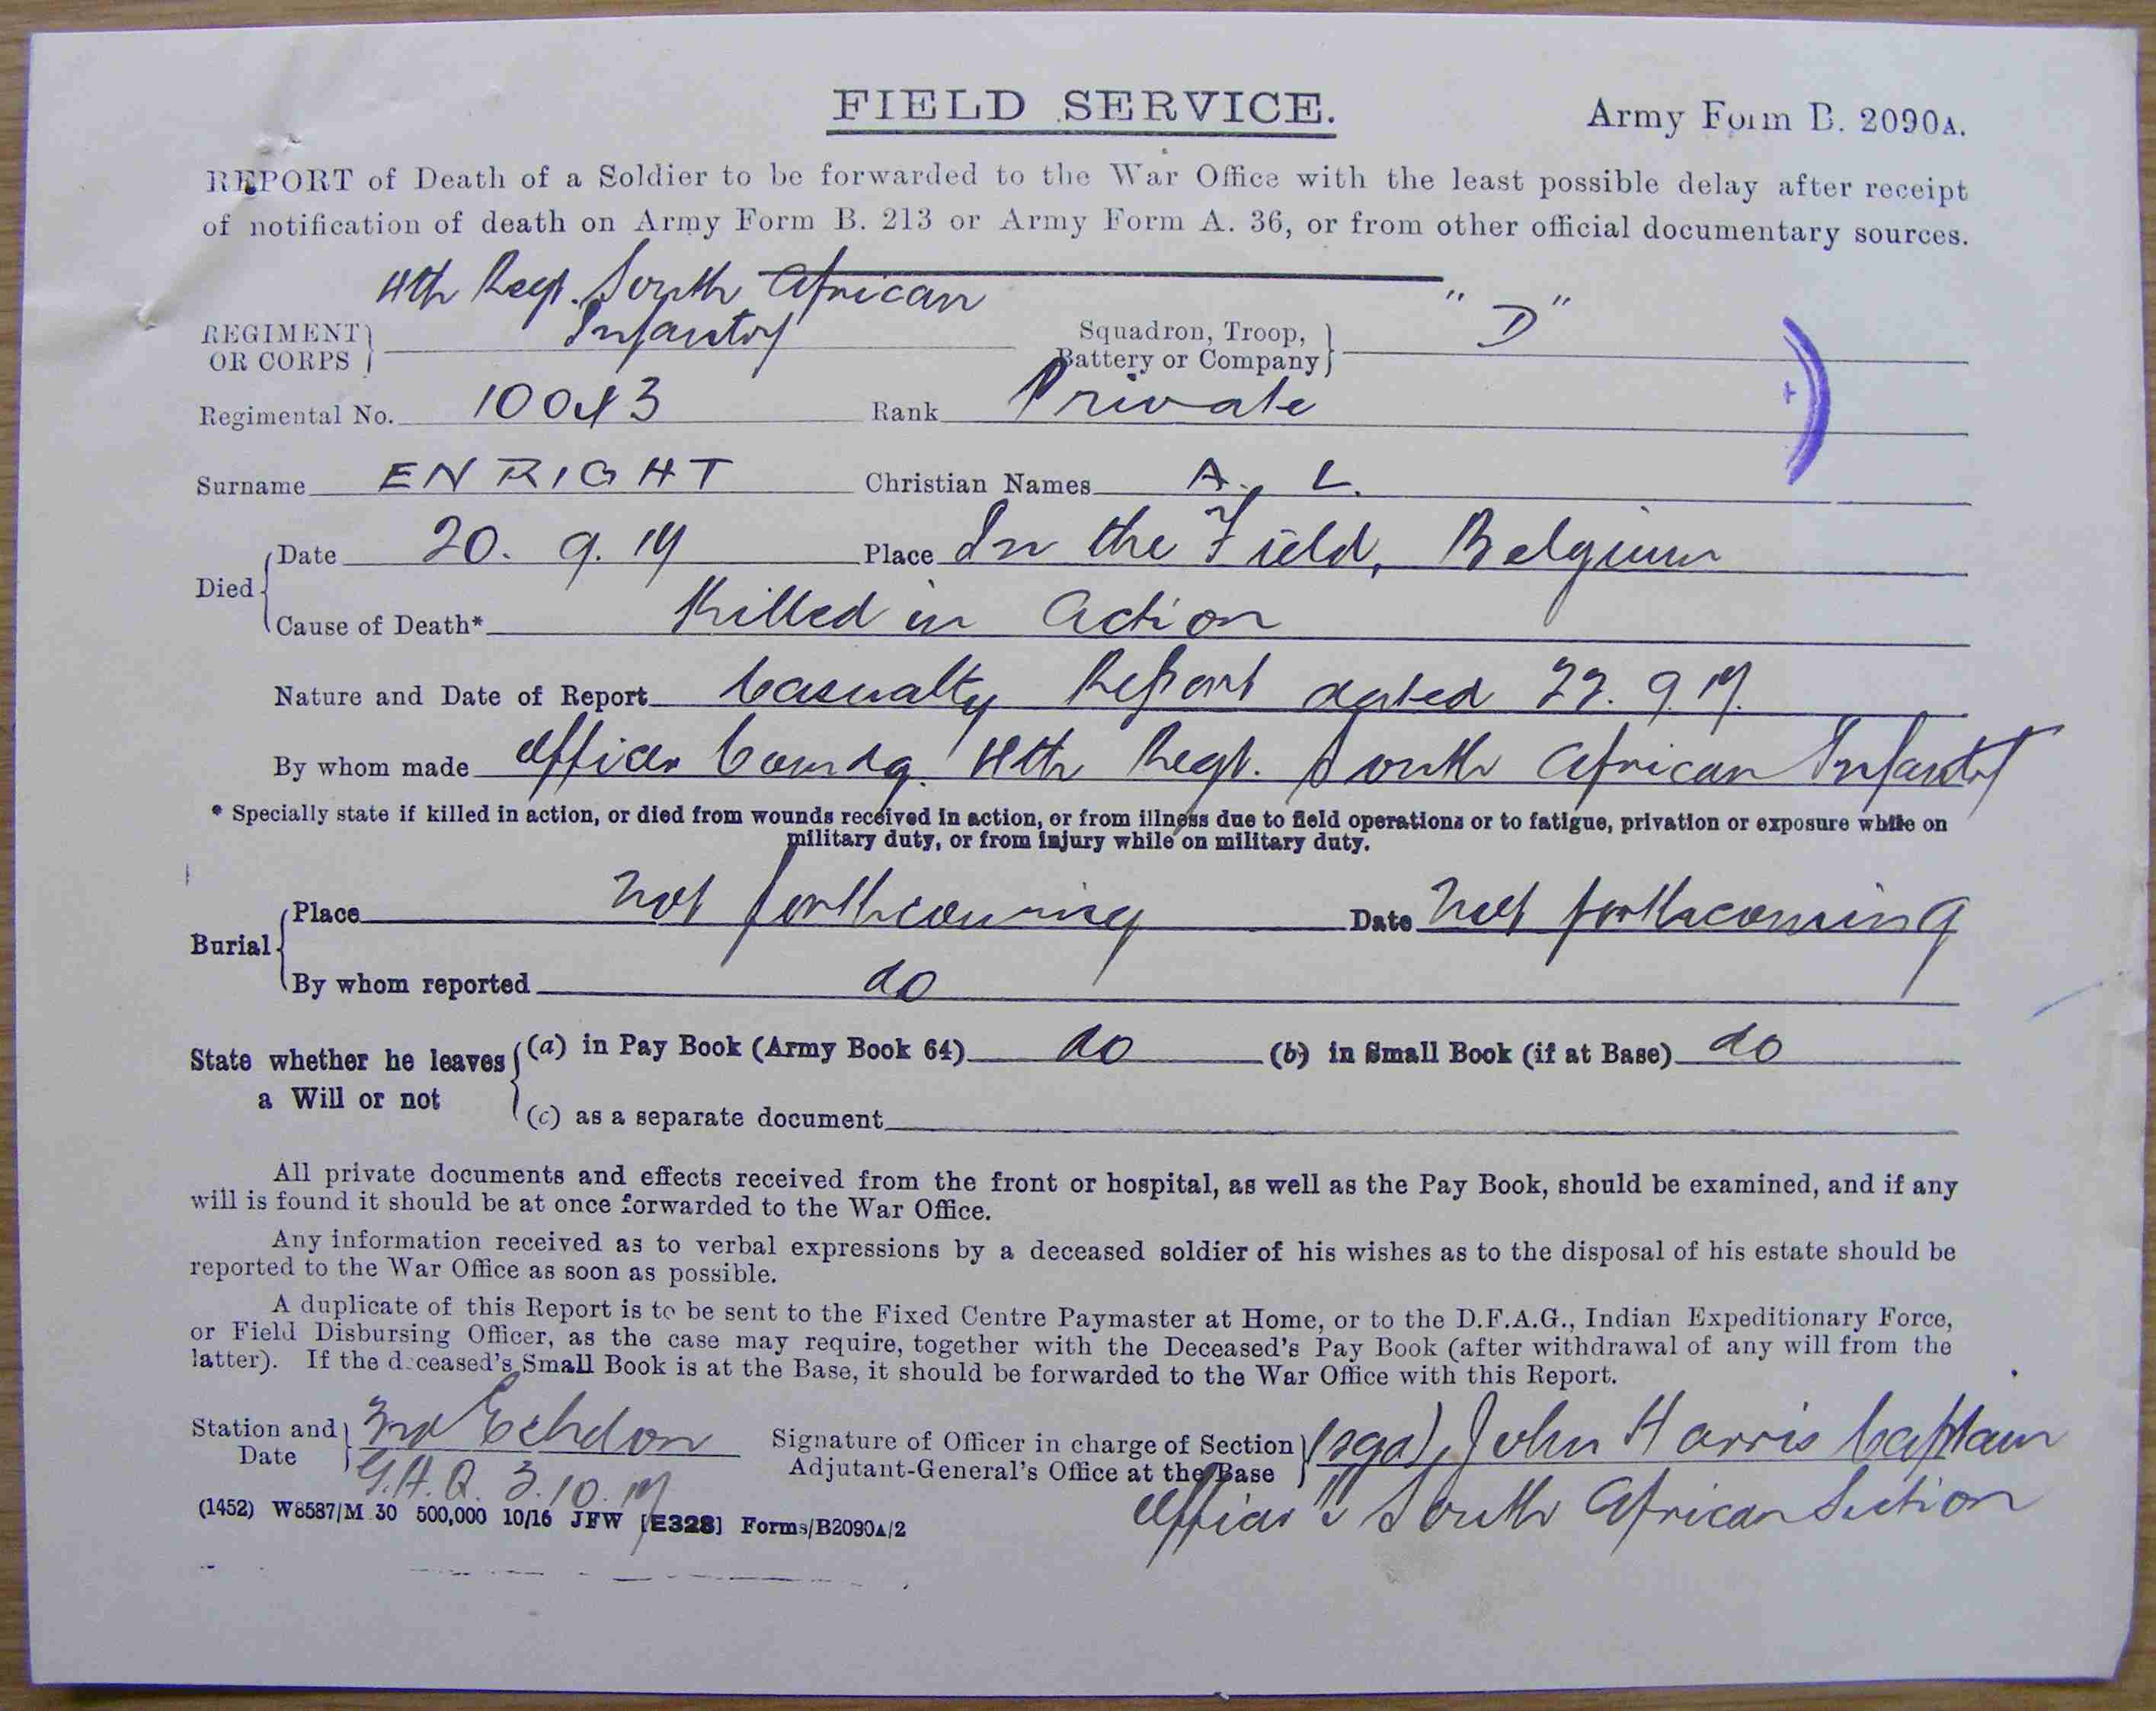 FIELD SERVICE.
Army Form B. 2090A.
REPORT of Death of a Soldier to be forwarded to the War Office with the least possible delay after receipt
of notification of death on Army Form B. 213 or Army Form A. 36, or from other official documentary sources.
4th Regt. South African
Infantry
REGIMENT OR CORPS
Squadron, Troop, Battery or Company "D"
Regimental No. 10043 Rank Private
Surname ENRIGHT Christian Names A. L.
Died Date 20. 9. 17 Place In the Field, Belgium
Cause of Death* Killed in Action
Nature and Date of Report Casualty Report dated 22. 9. 17.
By whom made Officer Comdg. 4th Regt. South African Infantry
* Specially state if killed in action, or died from wounds received in action, or from illness due to field operations or to fatigue, privation or exposure while on
military duty, or from injury while on military duty.
Burial Place not forthcoming Date not forthcoming
By whom reported do
State whether he leaves a Will or not (a) in Pay Book (Army Book 64) do (b) in Small Book (if at Base) do
(c) as a separate document
All private documents and effects received from the front or hospital, as well as the Pay Book, should be examined, and if any
will is found it should be at once forwarded to the War Office.
Any information received as to verbal expressions by a deceased soldier of his wishes as to the disposal of his estate should be
reported to the War Office as soon as possible.
A duplicate of this Report is to be sent to the Fixed Centre Paymaster at Home, or to the D.F.A.G., Indian Expeditionary Force,
or Field Disbursing Officer, as the case may require, together with the Deceased's Pay Book (after withdrawal of any will from the
latter). If the deceased's Small Book is at the Base, it should be forwarded to the War Office with this Report.
Station and Date 3rd Echelon
G.H.Q. 3. 10. 17
Signature of Officer in charge of Section Adjutant-General's Office at the Base (sgd) John Harris Captain
Officer i/c South African Section
(1452) W8587/M 30 500,000 10/16 JFW [E328] Forms/B2090A/2